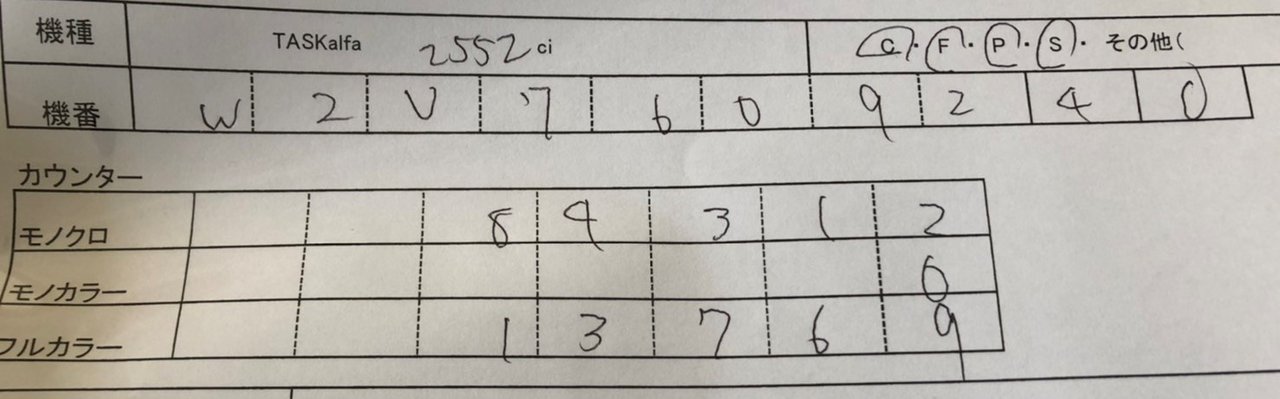 機種 TASKalfa 2552 ci C・F・P・S・その他(
機番 W 2 V 7 6 0 9 2 4 0
カウンター
モノクロ 8 4 3 1 2
モノカラー 0
フルカラー 1 3 7 6 9